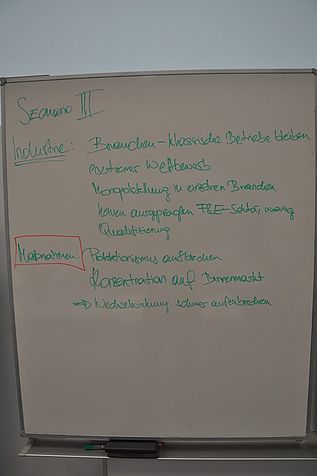 Szenario III
Industrie: Branchen - klassische Betriebe bleiben
extremer Wettbewerb
Monopolstellung in einzelnen Branchen
keinen ausgeprägten F&E-Sektor, wenig
Qualifizierung
Maßnahmen: Protektionismus aufbrechen
Konzentration auf Binnenmarkt
⇒ Wechselwirkung schwer aufzubrechen